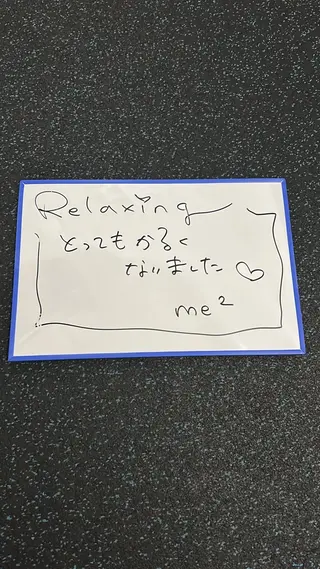 Relaxing
とってもかるく
なりました♡
me²